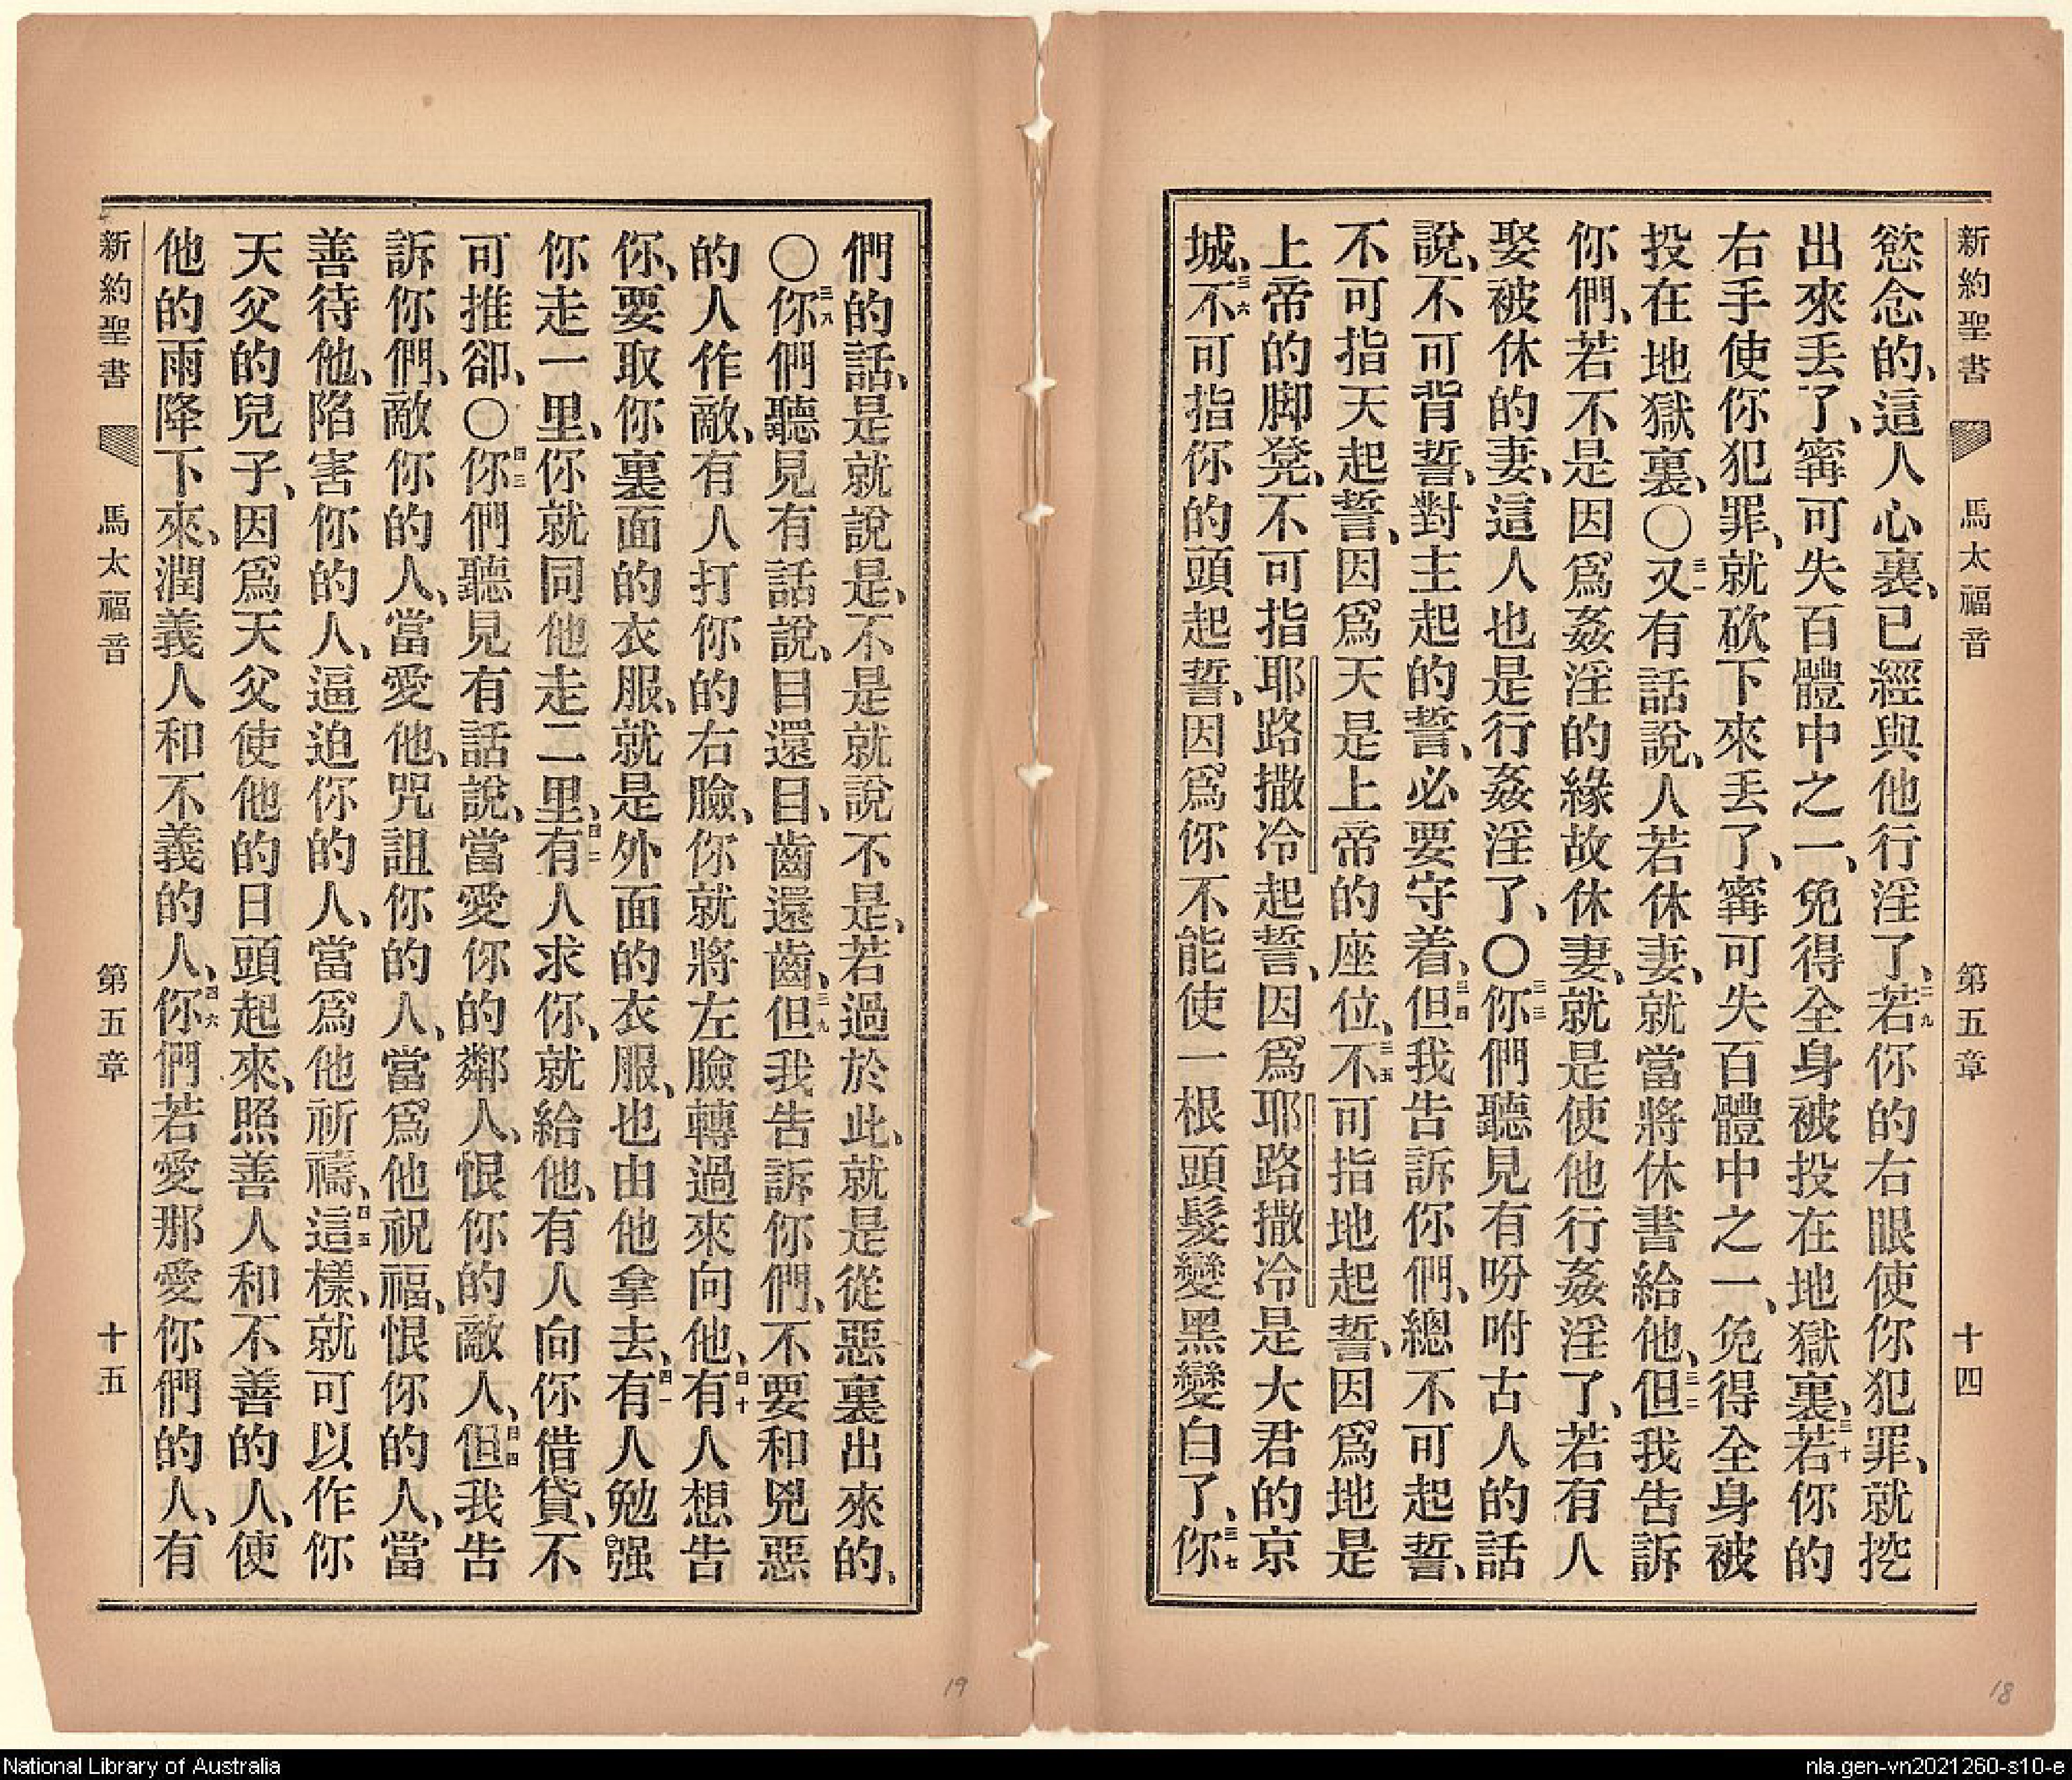 新約聖書　馬太福音　第五章　十四
慾念的、這人心裏、已經與他行淫了、二九若你的右眼使你犯罪、就挖
出來丟了、寗可失百體中之一、免得全身被投在地獄裏、三十若你的
右手使你犯罪、就砍下來丟了、寗可失百體中之一、免得全身被
投在地獄裏、〇三一又有話說、人若休妻、就當將休書給他、三二但我告訴
你們、若不是因爲姦淫的緣故休妻、就是使他行姦淫了、若有人
娶被休的妻、這人也是行姦淫了、〇三三你們聽見有吩咐古人的話
說、不可背誓、對主起的誓、必要守着、三四但我告訴你們、總不可起誓、
不可指天起誓、因爲天是上帝的座位、三五不可指地起誓、因爲地是
上帝的脚凳、不可指耶路撒冷起誓、因爲耶路撒冷是大君的京
城、三六不可指你的頭起誓、因爲你不能使一根頭髮變黑變白了、三七你
們的話、是就說是、不是就說不是、若過於此、就是從惡裏出來的、
〇三八你們聽見有話說、目還目、齒還齒、三九但我告訴你們、不要和兇惡
的人作敵、有人打你的右臉、你就將左臉轉過來向他、四十有人想告
你、要取你裏面的衣服、就是外面的衣服、也由他拿去、四一有人勉强
你走一里、你就同他走二里、四二有人求你、就給他、有人向你借貸、不
可推卻、〇四三你們聽見有話說、當愛你的鄰人、恨你的敵人、四四但我告
訴你們、敵你的人、當愛他、咒詛你的人、當爲他祝福、恨你的人、當
善待他、陷害你的人、逼迫你的人、當爲他祈禱、四五這樣、就可以作你
天父的兒子、因爲天父使他的日頭起來、照善人和不善的人、使
他的雨降下來、潤義人和不義的人、四六你們若愛那愛你們的人、有
新約聖書　馬太福音　第五章　十五
19
18
National Library of Australia
nla.gen-vn2021260-s10-e